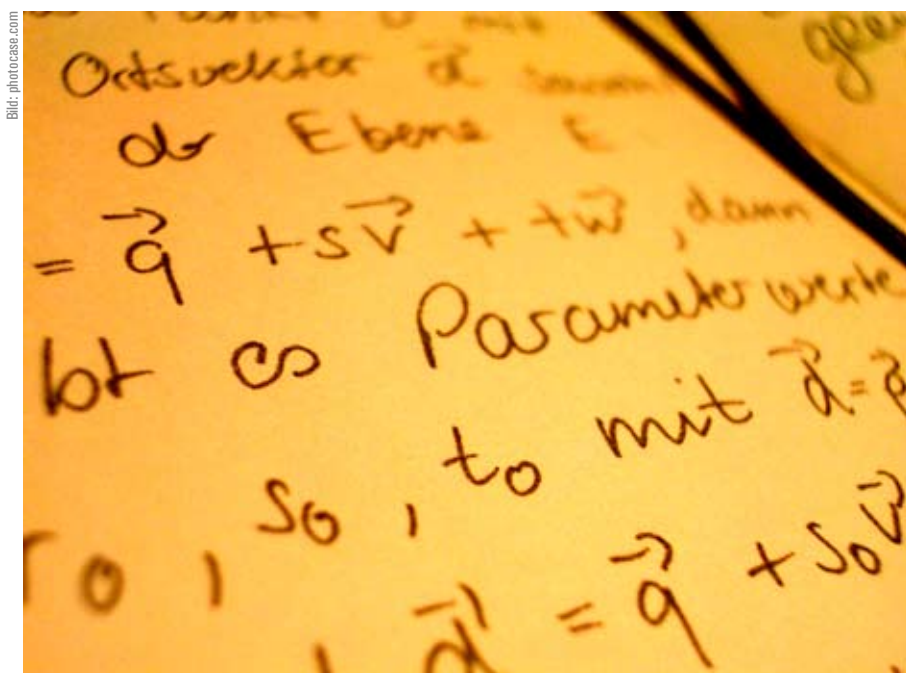 Bild: photocase.com
Ortsvektor d⃗
der Ebene E
= q⃗ + sv⃗ + tw⃗, dann
bt es Parameterwerte
r₀, s₀, t₀ mit d⃗ = p⃗
d⃗ = q⃗ + s₀v⃗